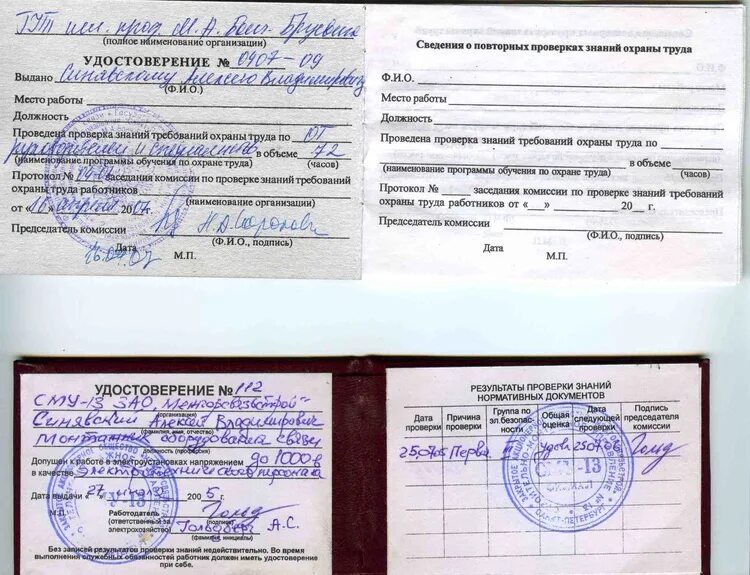 ГУТ им. проф. М. А. Бонч-Бруевича
(полное наименование организации)
УДОСТОВЕРЕНИЕ № 0907-09
Выдано Синявскому Алексею Владимировичу
(Ф.И.О.)
Место работы
Должность
Проведена проверка знаний требований охраны труда по ОТ
руководителей и специалистов в объеме 72
(наименование программы обучения по охране труда) (часов)
Протокол № заседания комиссии по проверке знаний требований
охраны труда работников
(наименование организации)
от «16» апреля 2007г.
Председатель комиссии
(Ф.И.О., подпись)
Дата
М.П.
Сведения о повторных проверках знаний охраны труда
Ф.И.О.
Место работы
Должность
Проведена проверка знаний требований охраны труда по
в объеме
(наименование программы обучения по охране труда) (часов)
Протокол № заседания комиссии по проверке знаний требований
охраны труда работников от «__» 20__ г.
Председатель комиссии
(Ф.И.О., подпись)
Дата
М.П.
УДОСТОВЕРЕНИЕ № 112
СМУ-13 ЗАО Межгорсвязьстрой
(организация)
Синявский Алексей Владимирович
(фамилия, имя, отчество)
монтажник оборудования связи
должность (профессия)
Допущен к работе в электроустановках напряжением до 1000 в
в качестве электротехнического персонала
Дата выдачи 27 2005 г.
М.П. Работодатель
(ответственный за электрохозяйство)
(подпись)
А.С.
(фамилия, инициалы)
Без записей результатов проверки знаний недействительно. Во время
выполнения служебных обязанностей работник должен иметь удостоверение
при себе.
РЕЗУЛЬТАТЫ ПРОВЕРКИ ЗНАНИЙ
НОРМАТИВНЫХ ДОКУМЕНТОВ
Дата проверки Причина проверки Группа по эл.безопасности Общая оценка Дата следующей проверки Подпись председателя комиссии
25.07.05 Перв.
СМУ-13
ФИЛИАЛ
САНКТ-ПЕТЕРБУРГ